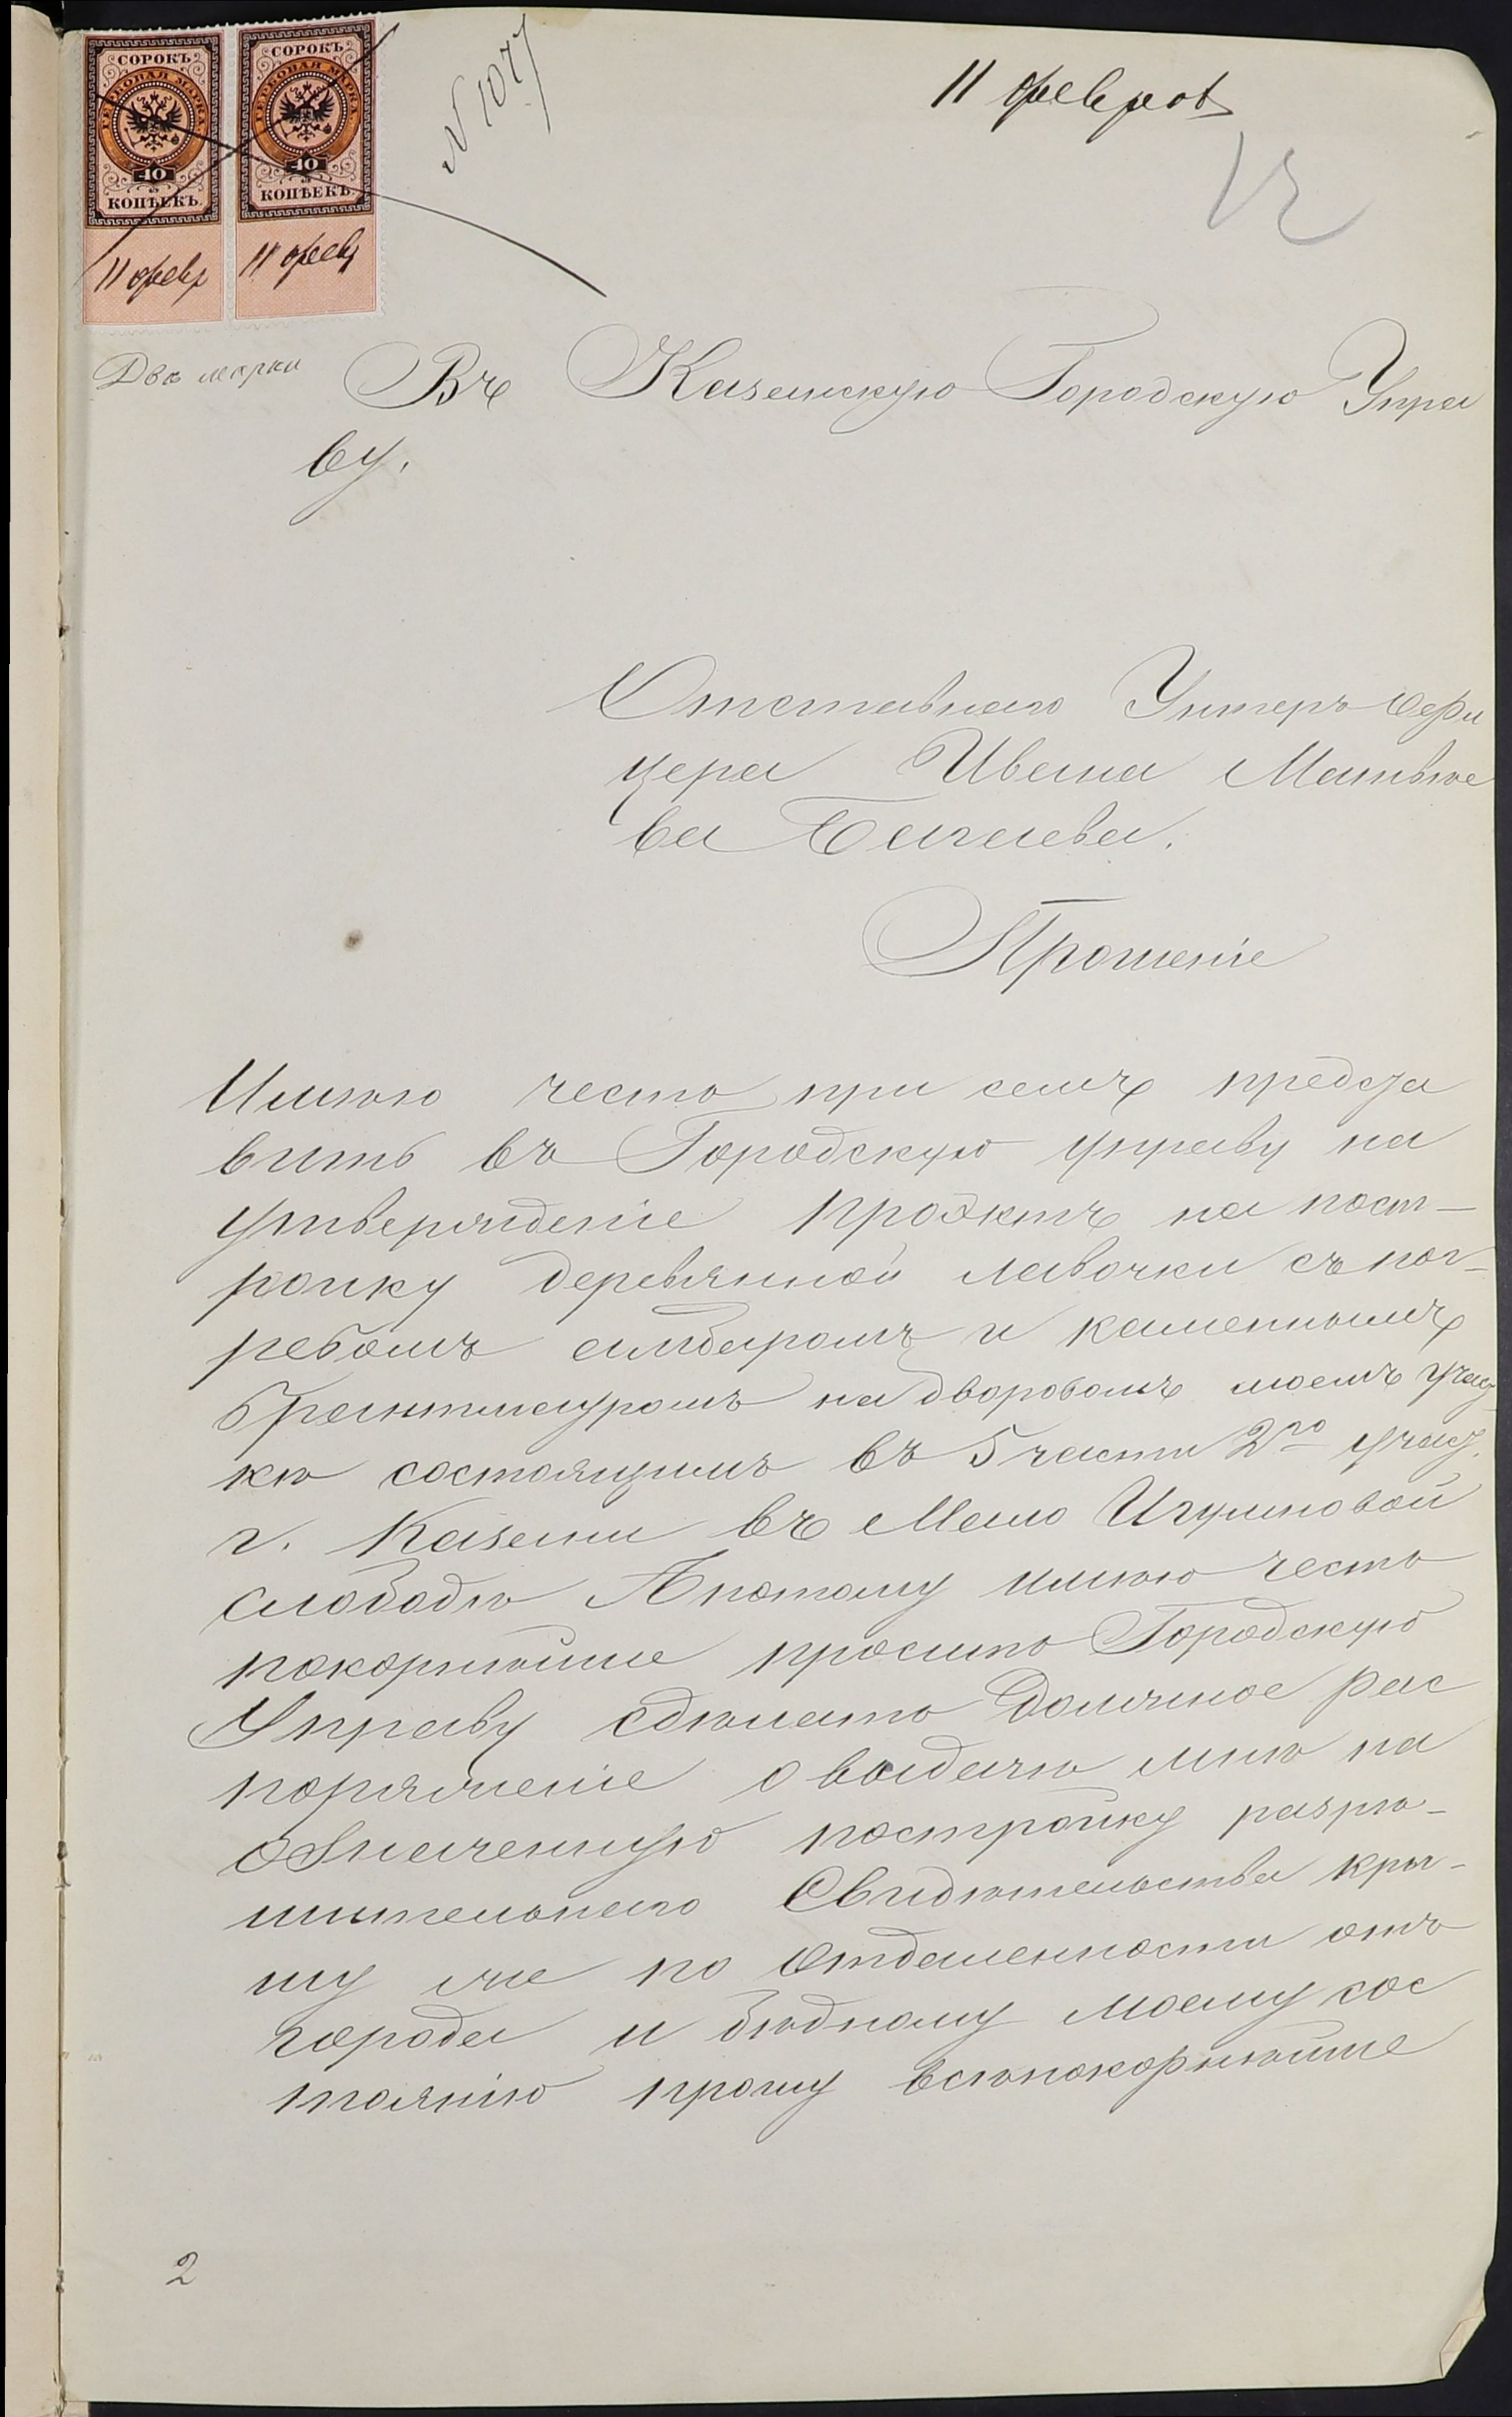 СОРОКЪ
ГЕРБОВАЯ МАРКА
40
КОПѢЕКЪ.
11 февр
СОРОКЪ
ГЕРБОВАЯ МАРКА
40
КОПѢЕКЪ.
11 февр
N 1077
11 февраля
Двѣ марки
Въ Казанскую Городскую Упра
ву.
Отставнаго Унтеръ Офи
цера Ивана Матвѣе
ва Багаева.
Прошеніе
Имѣю честь при семъ предста
вить въ Городскую управу на
утвержденіе проэктъ на пост-
ройку деревянной лавочки съ пог-
ребомъ амбаромъ и каменнымъ
брантмауромъ на дворовомъ моемъ участ
кѣ состоящимъ въ 5 части 2го участ.
г. Казани въ Мало Игумновой
слободѣ А потому имѣю честь
покорнѣйше просить Городскую
Управу сдѣлать должное рас
поряженіе о выдачѣ мнѣ на
означенную постройку разрѣ-
шительнаго Свидѣтельства кры-
шу же по отдаленности отъ
города и бѣдному моему сос
тоянію прошу всепокорнѣйше
2